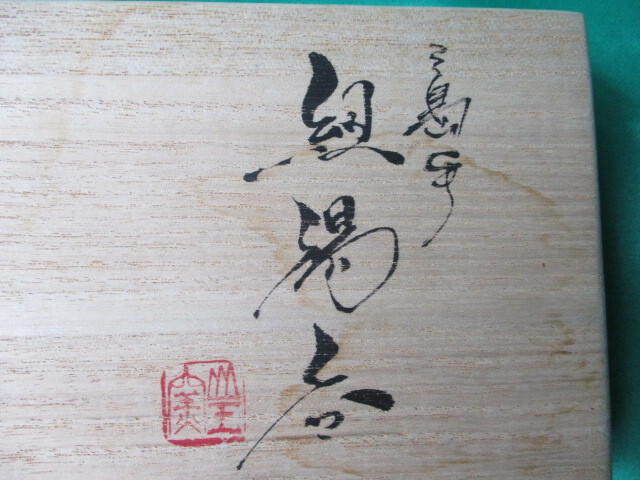 三島手
組湯呑